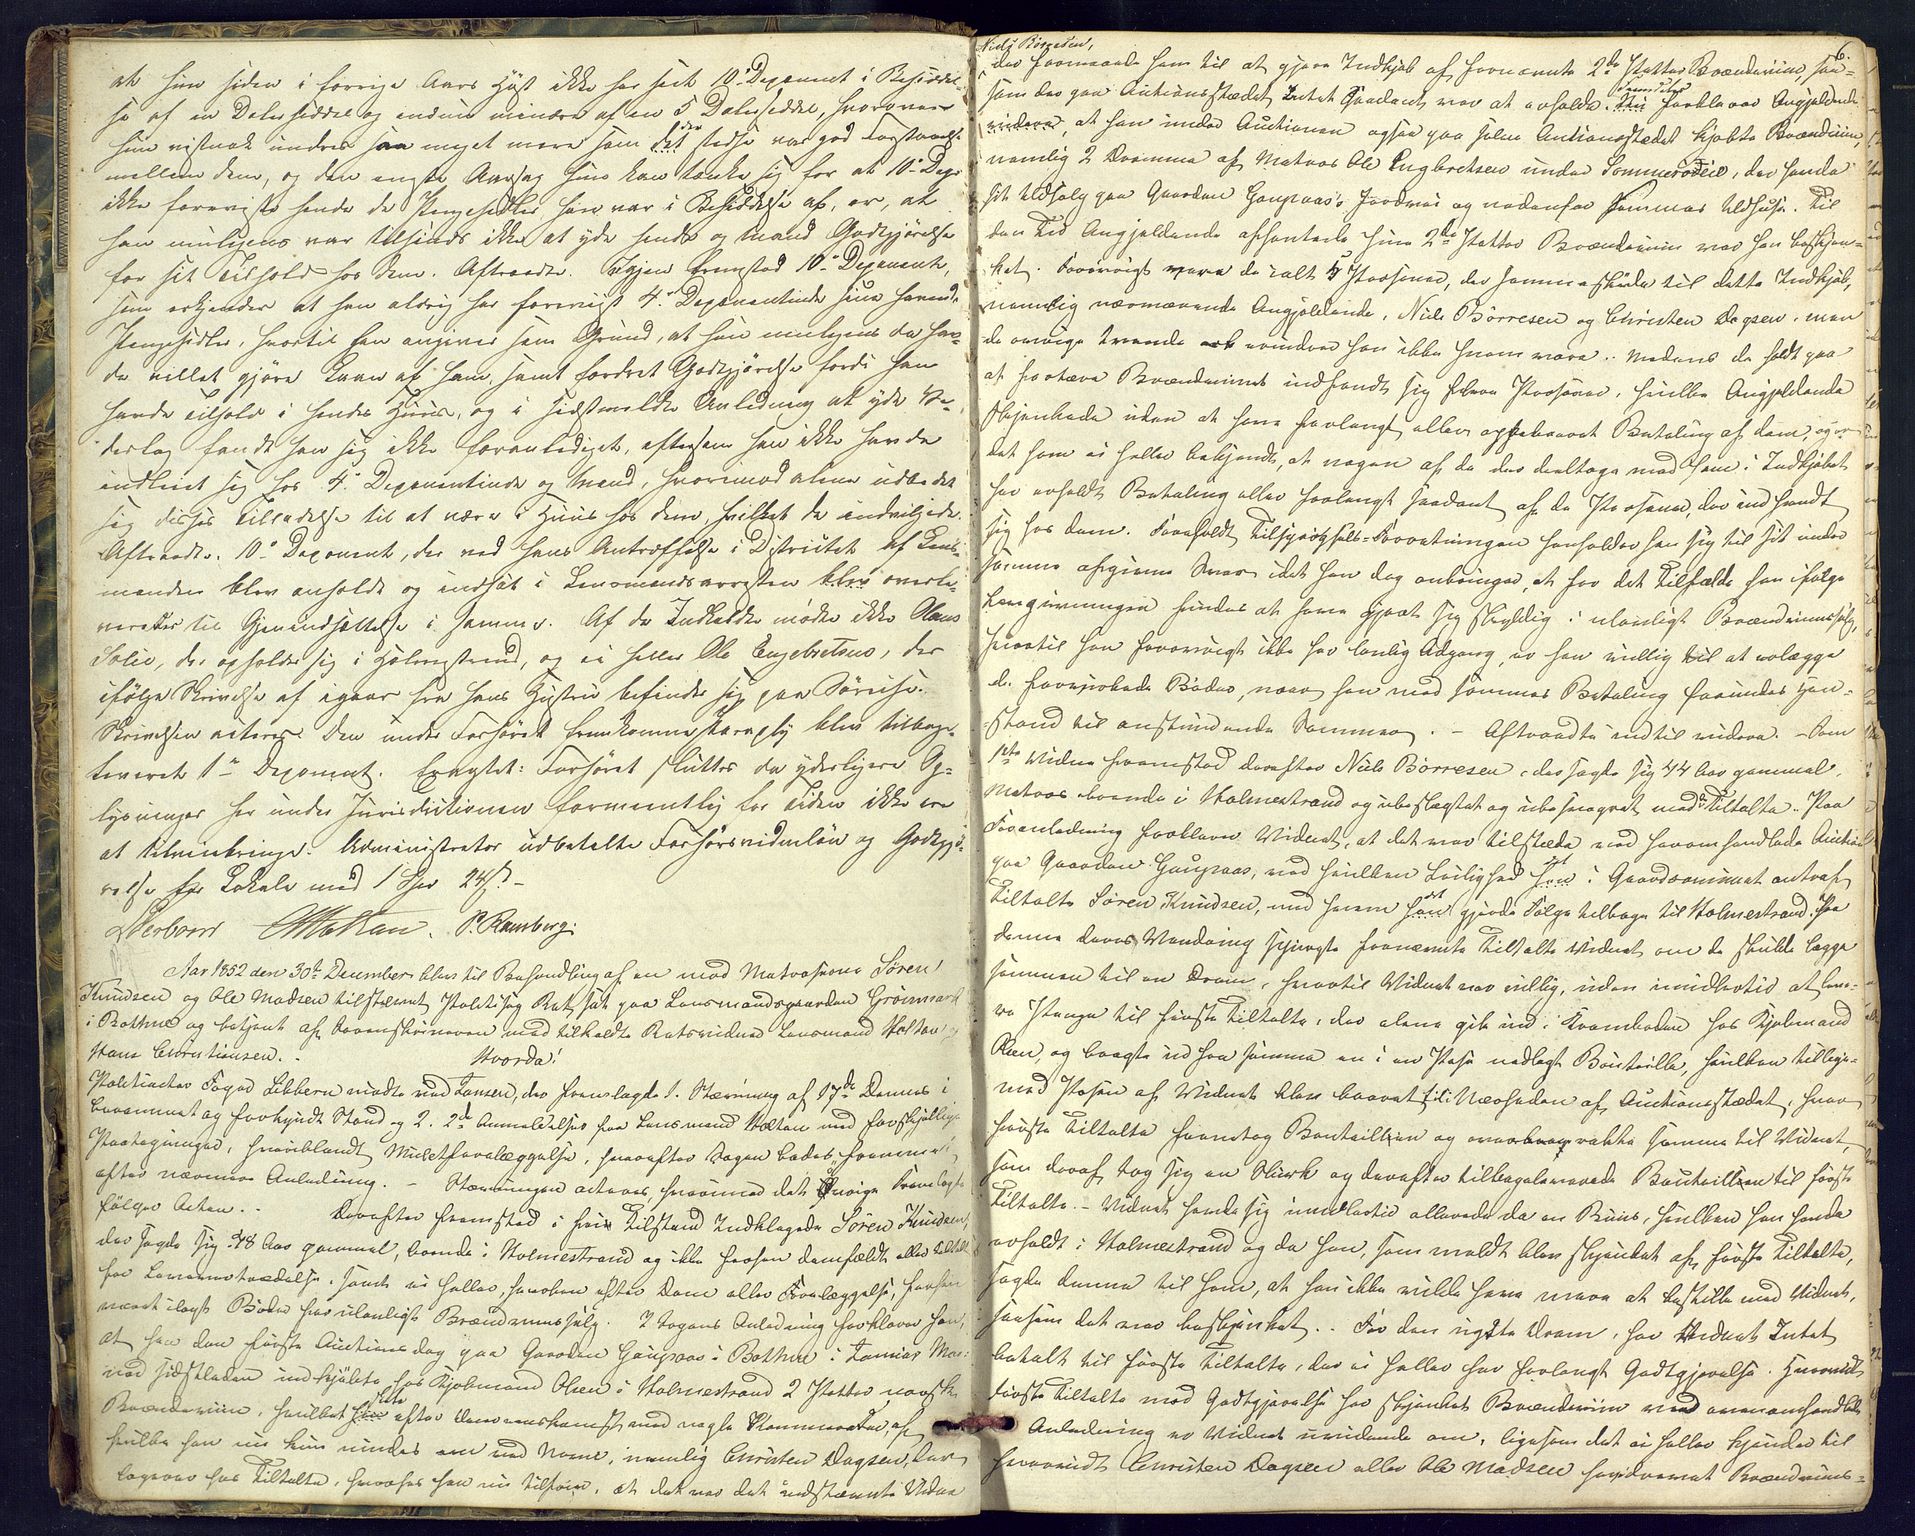 at hun siden i forrige Aars Høst ikke har seet 10. Deponent i Besiddel-
se af en Dalerseddel og endnu mindre af en 5 Dalerseddel, hvorover
hun vistnok undres saa meget mere som der stedse var god Forstaaelse
mellem dem, og den eneste Aarsag hun kan tænke sig for at 10. Dep.
ikke foreviste hende de Pengesedler han var i Besiddelse af, er, at
han muligens var tilsinds ikke at yde hende og Mand Godtgjørelse
for sit Tilhold hos dem. Aftraadte. Igjen fremstod 10. Deponent,
som erkjender at han aldrig har forevist 4. Deponentinde sine havende
Pengesedler, hvortil han angiver som Grund, at hun muligens da hav-
de villet gjøre Laan af ham, samt fordret Godtgjørelse fordi han
havde Tilhold i hendes Huus, og i sidstmeldte Anledning at yde Ve-
derlag fandt han sig ikke foranlediget, eftersom han ikke havde
indleiet sig hos 4. Deponentinde og Mand, hvorimod alene udbedet
sig disses Tilladelse til at være i Huus hos dem, hvilket de indvilgede.
Aftraadte. 10. Deponent, der ved hans Antræffelse i Districtet af Lens-
manden blev anholdt og indsat i Lensmandsarresten blev overle-
veret til Gjenindsættelse i samme. Af de Indkaldte mødte ikke Olaus
Solie, der opholder sig i Holmestrand, og ei heller Ole Engebretsen, der
ifølge Skrivelse af igaar fra hans Hustru befinder sig paa Søreise.
Skrivelsen acteres. Den under Forhøret fremkomne blev tilbage-
leveret 1. Deponent. Eragtet: Forhøret sluttes da yderligere Op-
lysninger her under Jurisdictionen formeentlig for Tiden ikke ere
at tilveiebringe. Administrator udbetalte Forhørsvidneløn og Godtgjø-
relse for Lokale med 1 Spd 24 s. -
P. Ramberg.
Aar 1852 den 30te December blev til Behandling af en mod Matroserne Søren
Knudsen og Ole Madsen tilstævnet Politisag Ret sat paa Lensmandsgaarden Grønmark
i Bothne og betjent af Sorenskriveren med tilkaldte Retsvidner Lensmand Holtan og
Hans Christiansen. - Hvorda!
Politiactor Foged Lebbern mødte ved Jansen, der fremlagde 1. Stævning af 17de Dennes i
beroemmet og forkyndt Stand og 2. 2de Anmeldelser fra Lensmand Holtan med forskjellige
Paategninger, hvoriblandt Mulctforelæggelse, hvorefter Sagen bades fremmet
efter nærmere Anledning. - Stævningen acteres, hvorimod det øvrige Fremlagte
følger Acten. - Derefter fremstod i frie Tilstand Indklagede Søren Knudsen,
der sagde sig 48 Aar gammel, boende i Holmestrand og ikke forhen domfældt eller tiltalt
for Lovovertrædelse, samt ei heller, hverken efter Dom eller Forelæggelse, forhen
været ilagt Bøder for ulovligt Brændeviinssalg. I Sagens Anledning forklarer han,
at han den første Auctionsdag paa Gaarden Gaupaas i Bothne i Januar Maa-
ned sidstleden indkjøbte hos Kjøbmand Olsen i Holmestrand 2 Potter norsk
Brændeviin, hvilket skete efter Overeenskomst med nogle Kammerater, af
hvilke han nu kun mindes een ved Navn, nemlig Christen Dagsen, der
logerer hos Tiltalte, hvorhos han nu tilføier, at det var det indstævnte Vidne
6.
Niels Børresen,
der formaaede ham til at gjøre Indkjøb af fornævnte 2de Potter Brændeviin, saa-
som der paa Auctionsstædet Intet saadant var at erholde. Fremdeles forklarer Angjeldende
videre, at han under Auctionen ogsaa paa selve Auctionsstædet kjøbte Brændeviin,
nemlig 2 Dramme af Matros Ole Engebretsen under Sommerodeie, der havde
sit Udsalg paa Gaarden Gaupaas's Jordvei og nedenfor sammes Udhuse. Til
den Tid Angjeldende afhentede hine 2de Potter Brændeviin var han beskjen-
ket. Forøvrigt vare de ialt 5 Personer, der sammenskjøde til dette Indkjøb,
nemlig nærværende Angjeldende, Niels Børresen og Christen Dagsen, men
de øvrige Tvende erindrer han ikke hvem vare. Medens de holdt paa
at fortære Brændeviinet indfandt sig flere Personer, hvilke Angjeldende
skjenkede uden at have forlangt eller oppebaaret Betaling af dem, og er
det ham ei heller bekjendt, at nogen af de der deeltoge med ham i Indkjøbet
har erholdt Betaling eller forlangt saadant af de Personer, der indfandt
sig hos dem. Foreholdt Tilsynsfolk-Forretningen henholder han sig til sit under
samme afgivne Svar idet han dog anbringer, at for det Tilfælde han ifølge
Lovgivningen findes at have gjort sig skyldig i ulovligt Brændeviinssalg,
hvortil han forøvrigt ikke har lovlig Adgang, er han villig til at erlægge
de forvirkede Bøder, naar han med sammes Betaling forundes Hen-
stand til anstundende Sommer. - Aftraadte indtil videre. - Som
1ste Vidne fremstod derefter Niels Børresen, der sagde sig 44 Aar gammel,
Matros boende i Holmestrand og ubeslægtet og ubesvogret med Tiltalte. Paa
Foranledning forklarer Vidnet, at det var tilstede ved heromhandlede Auction
paa Gaarden Gaupaas, ved hvilken Leilighed det i Gaardsrummet antraf
Tiltalte Søren Knudsen, med hvem det gjorde Følge tilbage til Holmestrand. Paa
denne deres Vandring spurgte fornævnte Tiltalte Vidnet om de skulde lægge
sammen til en Dram, hvortil Vidnet var villig, uden imidlertid at leve-
re Penge til første Tiltalte, der alene gik ind i Kramboden hos Kjøbmand
Olsen, og bragte ud fra samme en i en Pose nedlagt Bouteille, hvilken tillige-
med Posen af Vidnet blev baaret til Nærheden af Auctionsstædet, hvor
første Tiltalte fremtog Bouteillen og rakte samme til Vidnet,
som deraf tog sig en Slurk og derefter tilbageleverede Bouteillen til første
Tiltalte. - Vidnet havde sig imidlertid allerede da en Ruus, hvilken han havde
erholdt i Holmestrand og da han, som meldt blev skjenket af første Tiltalte,
sagde denne til ham, at han ikke vilde have mere at bestille med Vidnet,
saasom det var beskjenket. - For den nydte Dram, har Vidnet Intet
betalt til første Tiltalte, der ei heller har forlangt Godtgjørelse. Hvorvidt
første Tiltalte mod Godtgjørelse har skjenket Brændeviin ved ommeomhandlede
Anledning er Vidnet uvidende om, ligesom det ei heller kjender til
hvorvidt Christen Dagsen eller Ole Madsen havde drevet Brændeviins-